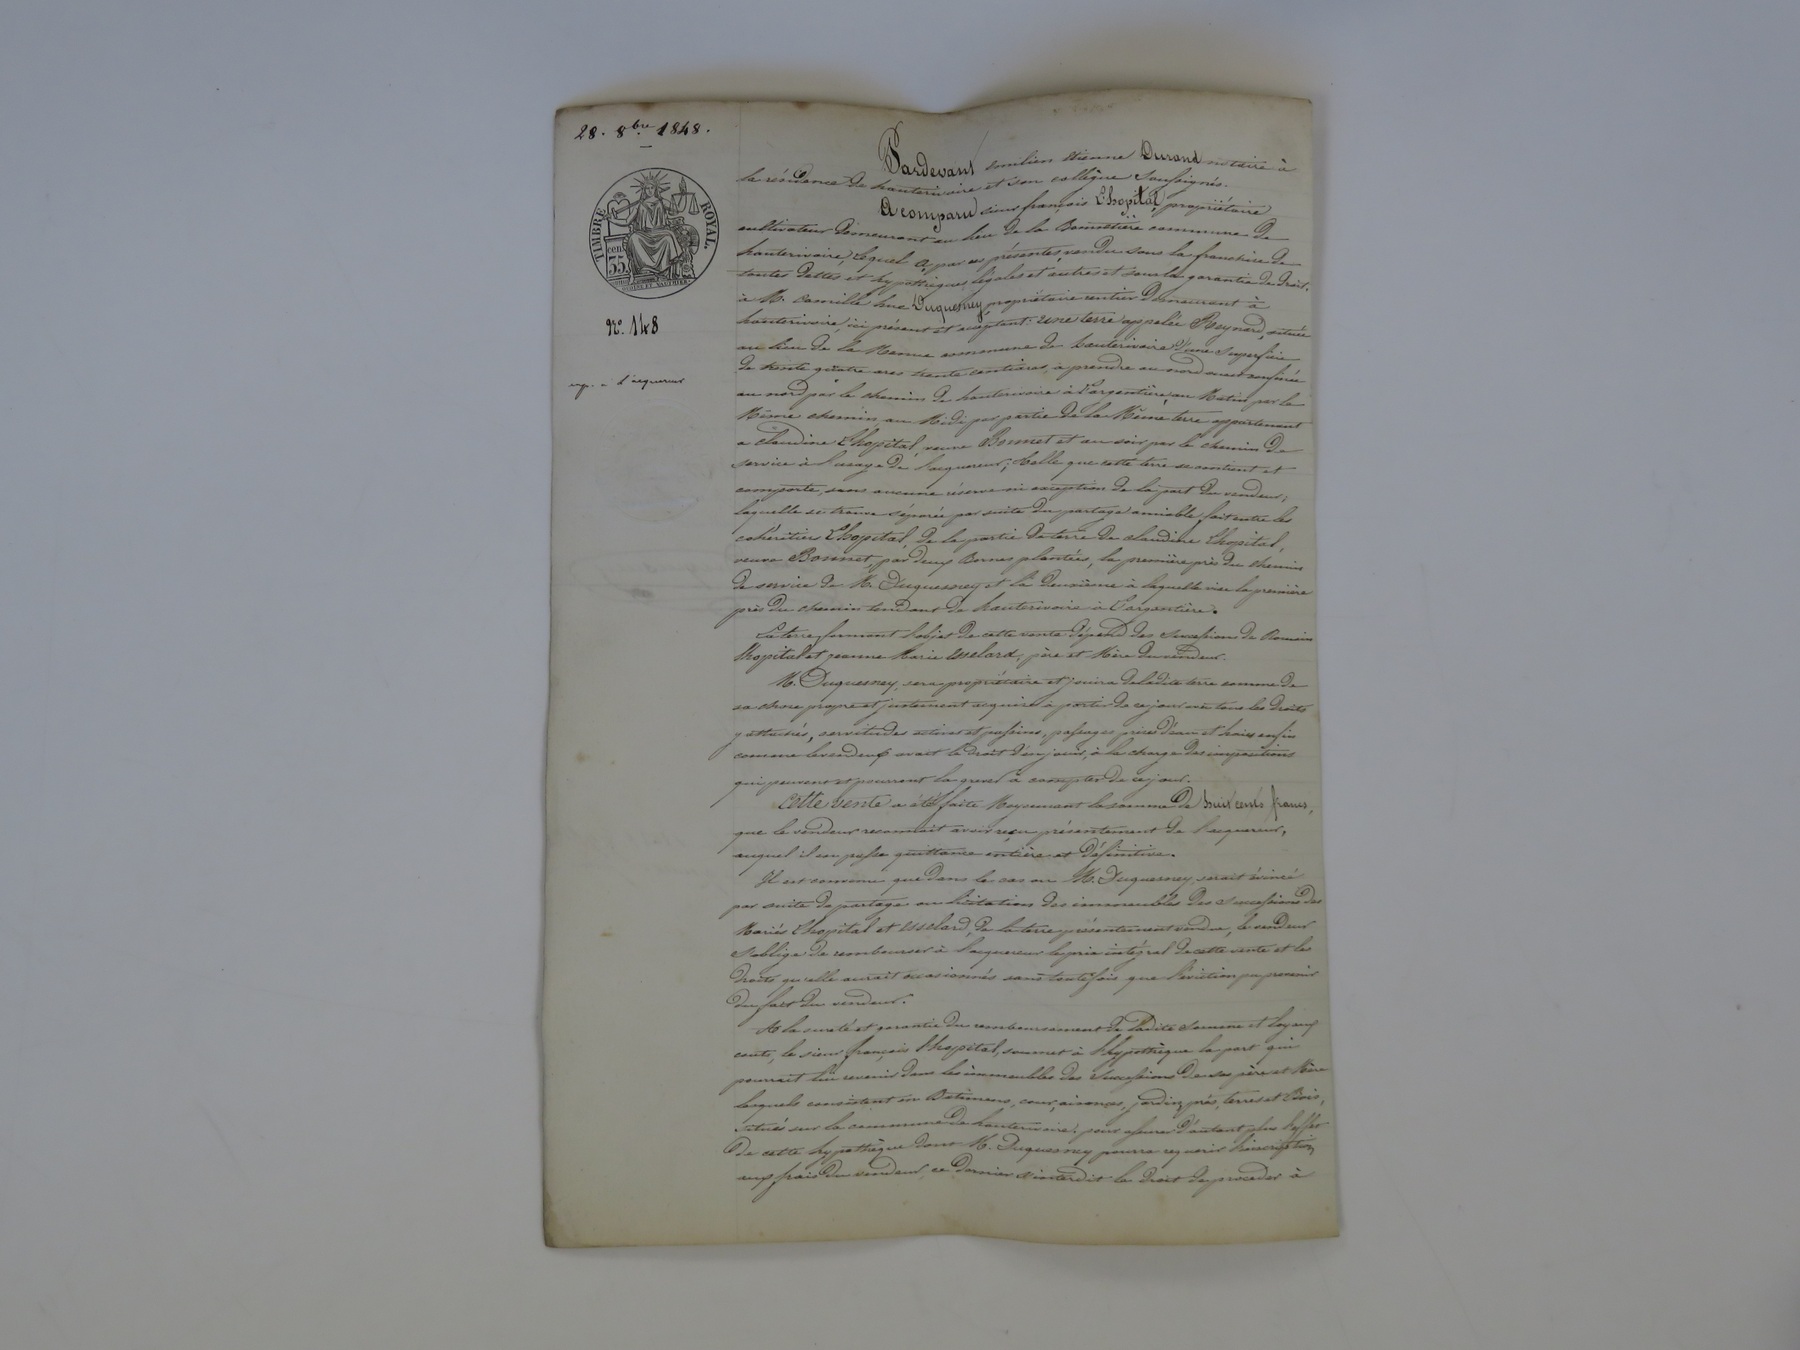 28. 8bre 1848.
TIMBRE ROYAL.
cen.
35
No. 148
exp. a l'acquereur
Pardevant émilien étienne Durand notaire à
la résidence de hauterivoire et son collègue soussignés.
A comparu sieur françois Lhopital, propriétaire
cultivateur demeurant au lieu de la Bonnetière commune de
hauterivoire, lequel a par ces présentes vendu sous la franchise de
toutes dettes et hypothèques légales et autres et sous la garantie de droit.
à M. Camille luc Duquesney, propriétaire rentier demeurant à
hauterivoire, ici présent et acceptant: une terre appelée Reynard, située
au lieu de la commune de hauterivoire d'une superficie
de trente quatre ares trente centiares, à prendre au nord confinée
au nord par le chemin de hauterivoire à l'argentière, au Matin par le
Même chemin, au Midi par partie de la Même terre appartenant
a claudine Lhopital, veuve Bonnet et au soir par le chemin de
service à l'usage de l'acquereur; telle que cette terre se contient et
comporte, sans aucune réserve ni exception de la part du vendeur,
laquelle se trouve séparée par suite du partage amiable, fait entre les
cohéritiers Lhopital, de la partie de terre de claudine Lhopital,
veuve Bonnet, par deux Bornes plantées, la première près du chemin
de service de M. Duquesney et la deuxième à laquelle vise la première
près du chemin tendant de hauterivoire à l'argentière.
La terre formant l'objet de cette vente dépend des successions de Romain
Lhopital et jeanne Marie Esselard, père et Mère du vendeur.
M. Duquesney, sera propriétaire et jouira de ladite terre comme de
sa chose propre et justement acquise à partir de ce jour avec tous les droits
y attachés, servitudes actives et passives, passages prises d'eau et haies enfin
comme le vendeur avait le droit d'en jouir, à la charge des impositions
qui peuvent et pourront la grever à compter de ce jour.
Cette vente a été faite Moyennant la somme de huit cents francs,
que le vendeur reconnait avoir reçu présentement de l'acquereur,
auquel il en passe quittance entière et définitive.
Il est convenu que dans le cas ou M. Duquesney serait évincé
par suite de partage ou licitation des immeubles des successions des
Mariés Lhopital et Esselard, de la terre présentement vendue, le vendeur
s'oblige de rembourser à l'acquereur le prix intégral de cette vente et les
droits qu'elle aurait occasionnés sans toutefois que l'éviction pu provenir
du fait du vendeur.
A la sureté et garantie du remboursement de ladite somme et loyaux
couts, le sieur françois Lhopital, soumet à l'hypothèque la part qui
pourrait lui revenir dans les immeubles des successions de ses père et Mère
lesquels consistent en Batimens, cour, aisances, jardin, prés, terres et Bois,
situés sur la commune de hauterivoire; pour assurer d'autant plus l'effet
de cette hypothèque dont M. Duquesney pourra requerir l'inscription
aux frais du vendeur, ce dernier s'interdit le droit de proceder à